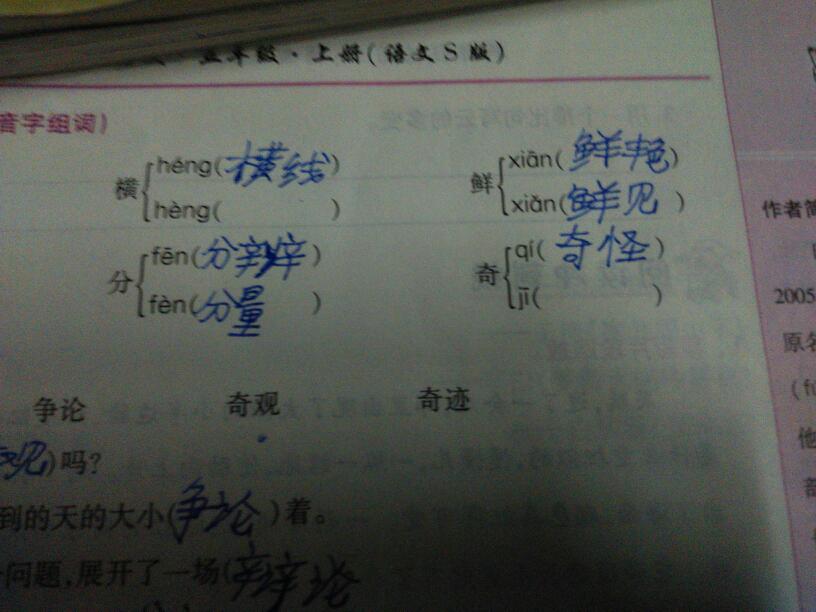 五年级·上册(语文S版)
音字组词)
横 héng(横线) 鲜 xiān(鲜艳)
hèng( ) xiǎn(鲜见)
分 fēn(分辨) 奇 qí(奇怪)
fèn(分量) jī( )
争论 奇观 奇迹
观)吗?
到的天的大小(争论)着。
问题,展开了一场(辩论
作者简
2005
原名
他
部